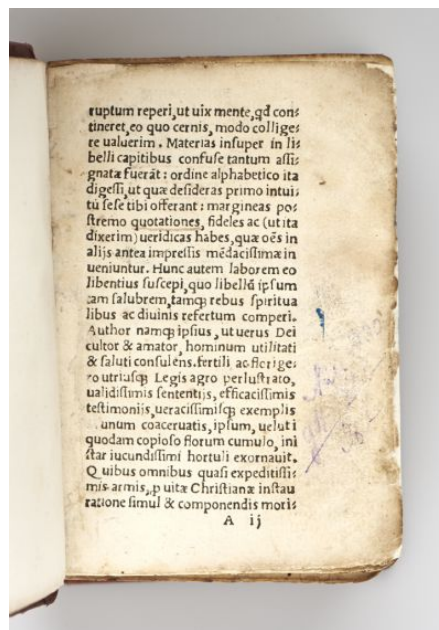 ruptum reperi, ut uix mente, qd con⸗
tineret, eo quo cernis, modo collige⸗
re ualuerim. Materias insuper in li⸗
belli capitibus confuse tantum assi⸗
gnatæ fuerãt: ordine alphabetico ita
digessi, ut quæ desideras primo intui⸗
tũ sese tibi offerant: margineas po⸗
stremo quotationes, fideles ac (ut ita
dixerim) ueridicas habes, quæ oẽs in
alijs antea impressis mẽdacissimæ in
ueniuntur. Hunc autem laborem eo
libentius suscepi, quo libellũ ipsum
tam salubrem, tamq; rebus spiritua
libus ac diuinis refertum comperi.
Author namq; ipsius, ut uerus Dei
cultor & amator, hominum utilitati
& saluti consulens. fertili ac florige⸗
ro utriusq; Legis agro perlustrato,
ualidissimis sententijs, efficacissimis
testimonijs, ueracissimisq; exemplis
unum coaceruatis, ipsum, uelut i
quodam copioso florum cumulo, ini
star iucundissimi hortuli exornauit.
Quibus omnibus quasi expeditissi⸗
mis armis, ꝓ uitæ Christianæ instau
ratione simul & componendis mori⸗
A ij